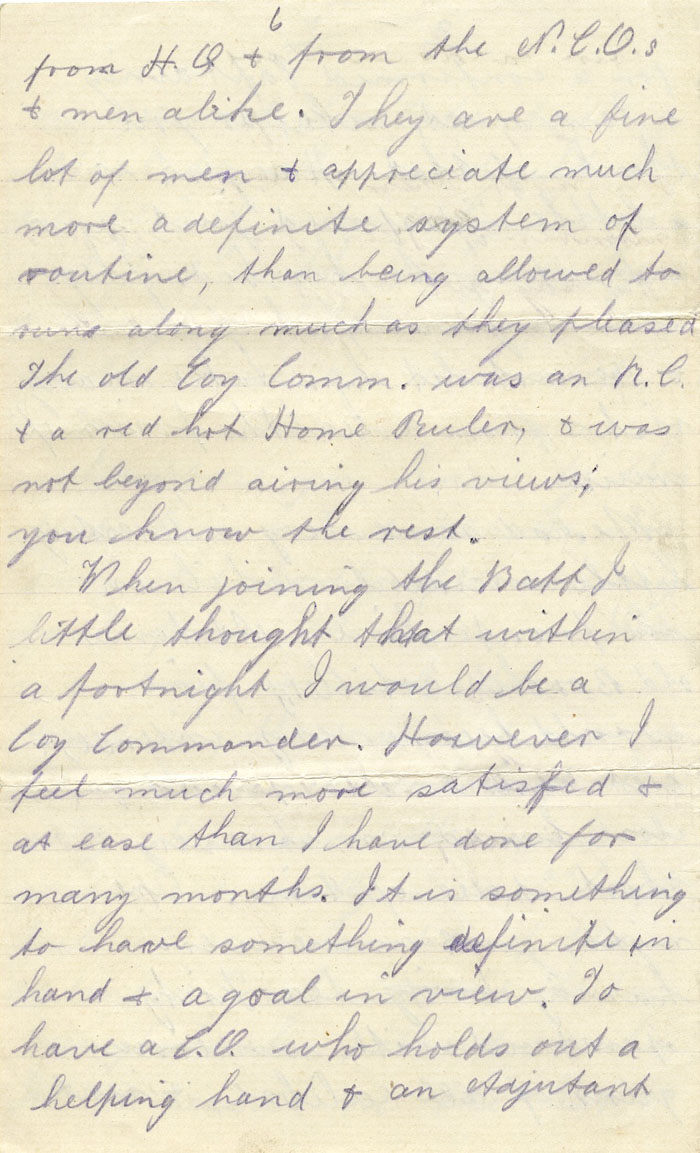 6
from H.Q & from the N.C.O.s
& men alike. They are a fine
lot of men & appreciate much
more a definite system of
routine, than being allowed to
runs along much as they pleased
The old Coy Comm. was an R.C.
& a red hot Home Ruler, & was
not beyond airing his views;
you know the rest.
When joining the Batt I
little thought that within
a fortnight I would be a
Coy Commander. However I
feel much more satisfied &
at ease than I have done for
many months. It is something
to have something definite in
hand & a goal in view. To
have a C.O. who holds out a
helping hand & an Adjutant